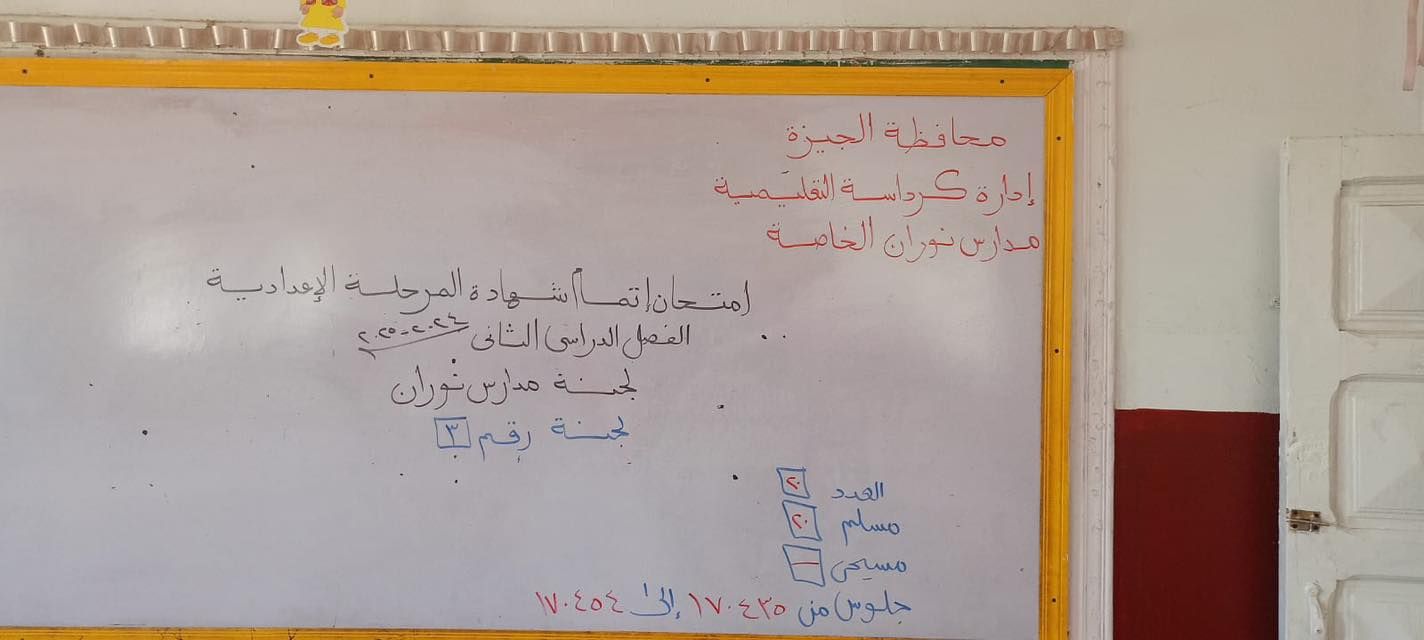 محافظة الجيزة
إدارة كرداسة التعليمية
مدارس نوران الخاصة
امتحان إتمام شهادة المرحلة الإعدادية
الفصل الدراسى الثانى ٢٠٢٤-٢٠٢٥
لجنة مدارس نوران
لجنة رقم ٣
العدد ٢٠
مسلم ٢٠
مسيحى -
جلوس من ١٧٠٤٣٥ إلى ١٧٠٤٥٤